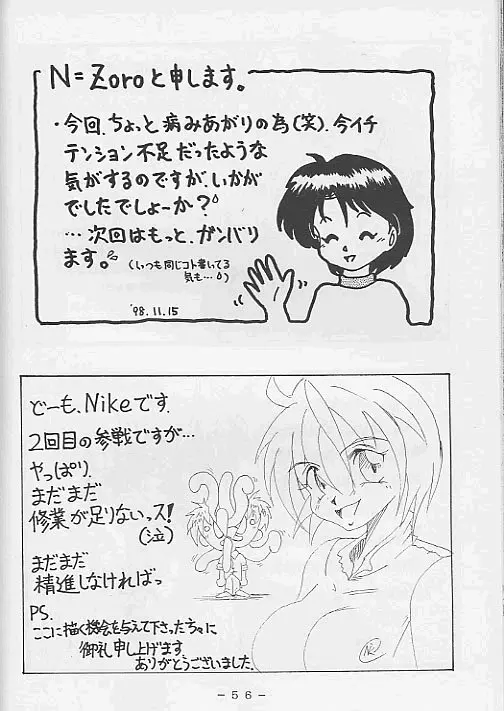 N=Zoroと申します。
・今回、ちょっと病みあがりの為(笑)、今イチ
テンション不足だったような
気がするのですが、いかが
でしたでしょーか?
…次回はもっと、ガンバリ
ます。
(いつも同じコト書いてる
気も…)
'98.11.15
どーも、Nikeです。
2回目の参戦ですが…
やっぱり、
まだまだ
修業が足りないっス!
(泣)
まだまだ
精進しなければっ
PS.
ここに描く機会を与えて下さった方々に
御礼申し上げます
ありがとうございました。
-56-